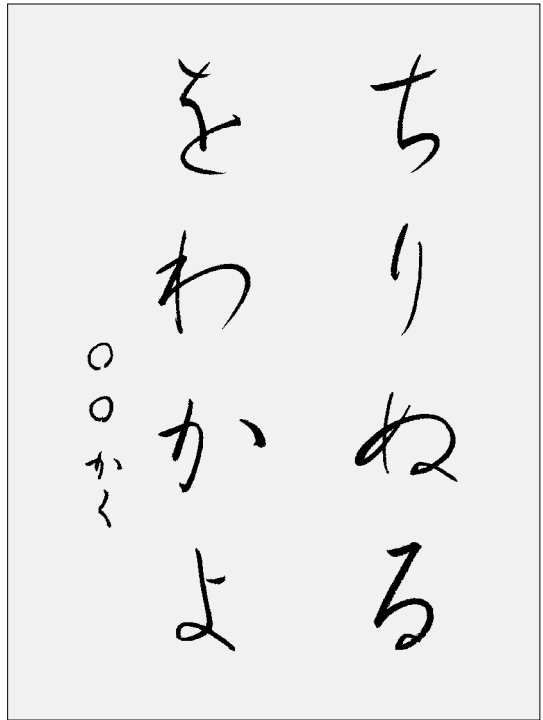 ちりぬる
をわかよ
○○かく